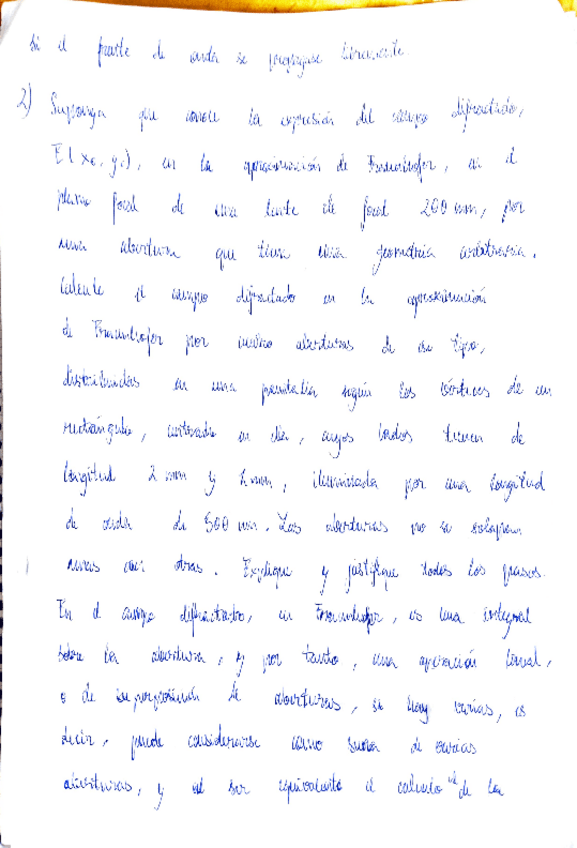 si el frente de onda se propagase linealmente.
2) Suponga que conoce la expresión del campo difractado,
E(x₀, y₀), en la aproximación de Fraunhofer, en el
plano focal de una lente de focal 200 mm, por
una abertura que tiene una geometría arbitraria.
Calcule el campo difractado en la aproximación
de Fraunhofer por cuatro aberturas de su tipo,
distribuidas en una pantalla según los vértices de un
rectángulo, centrado en ella, cuyos lados tienen de
longitud 2 mm y mm, iluminada por una longitud
de onda de 500 nm. Las aberturas no se solapan
unas con otras. Explique y justifique todos los pasos.
En el campo difractado, en Fraunhofer, es una integral
sobre la abertura, y por tanto, una operación lineal,
o de superposición de aberturas, si hay varias, es
decir, puede considerarse como suma de varias
aberturas, y al ser equivalente el calculo de la